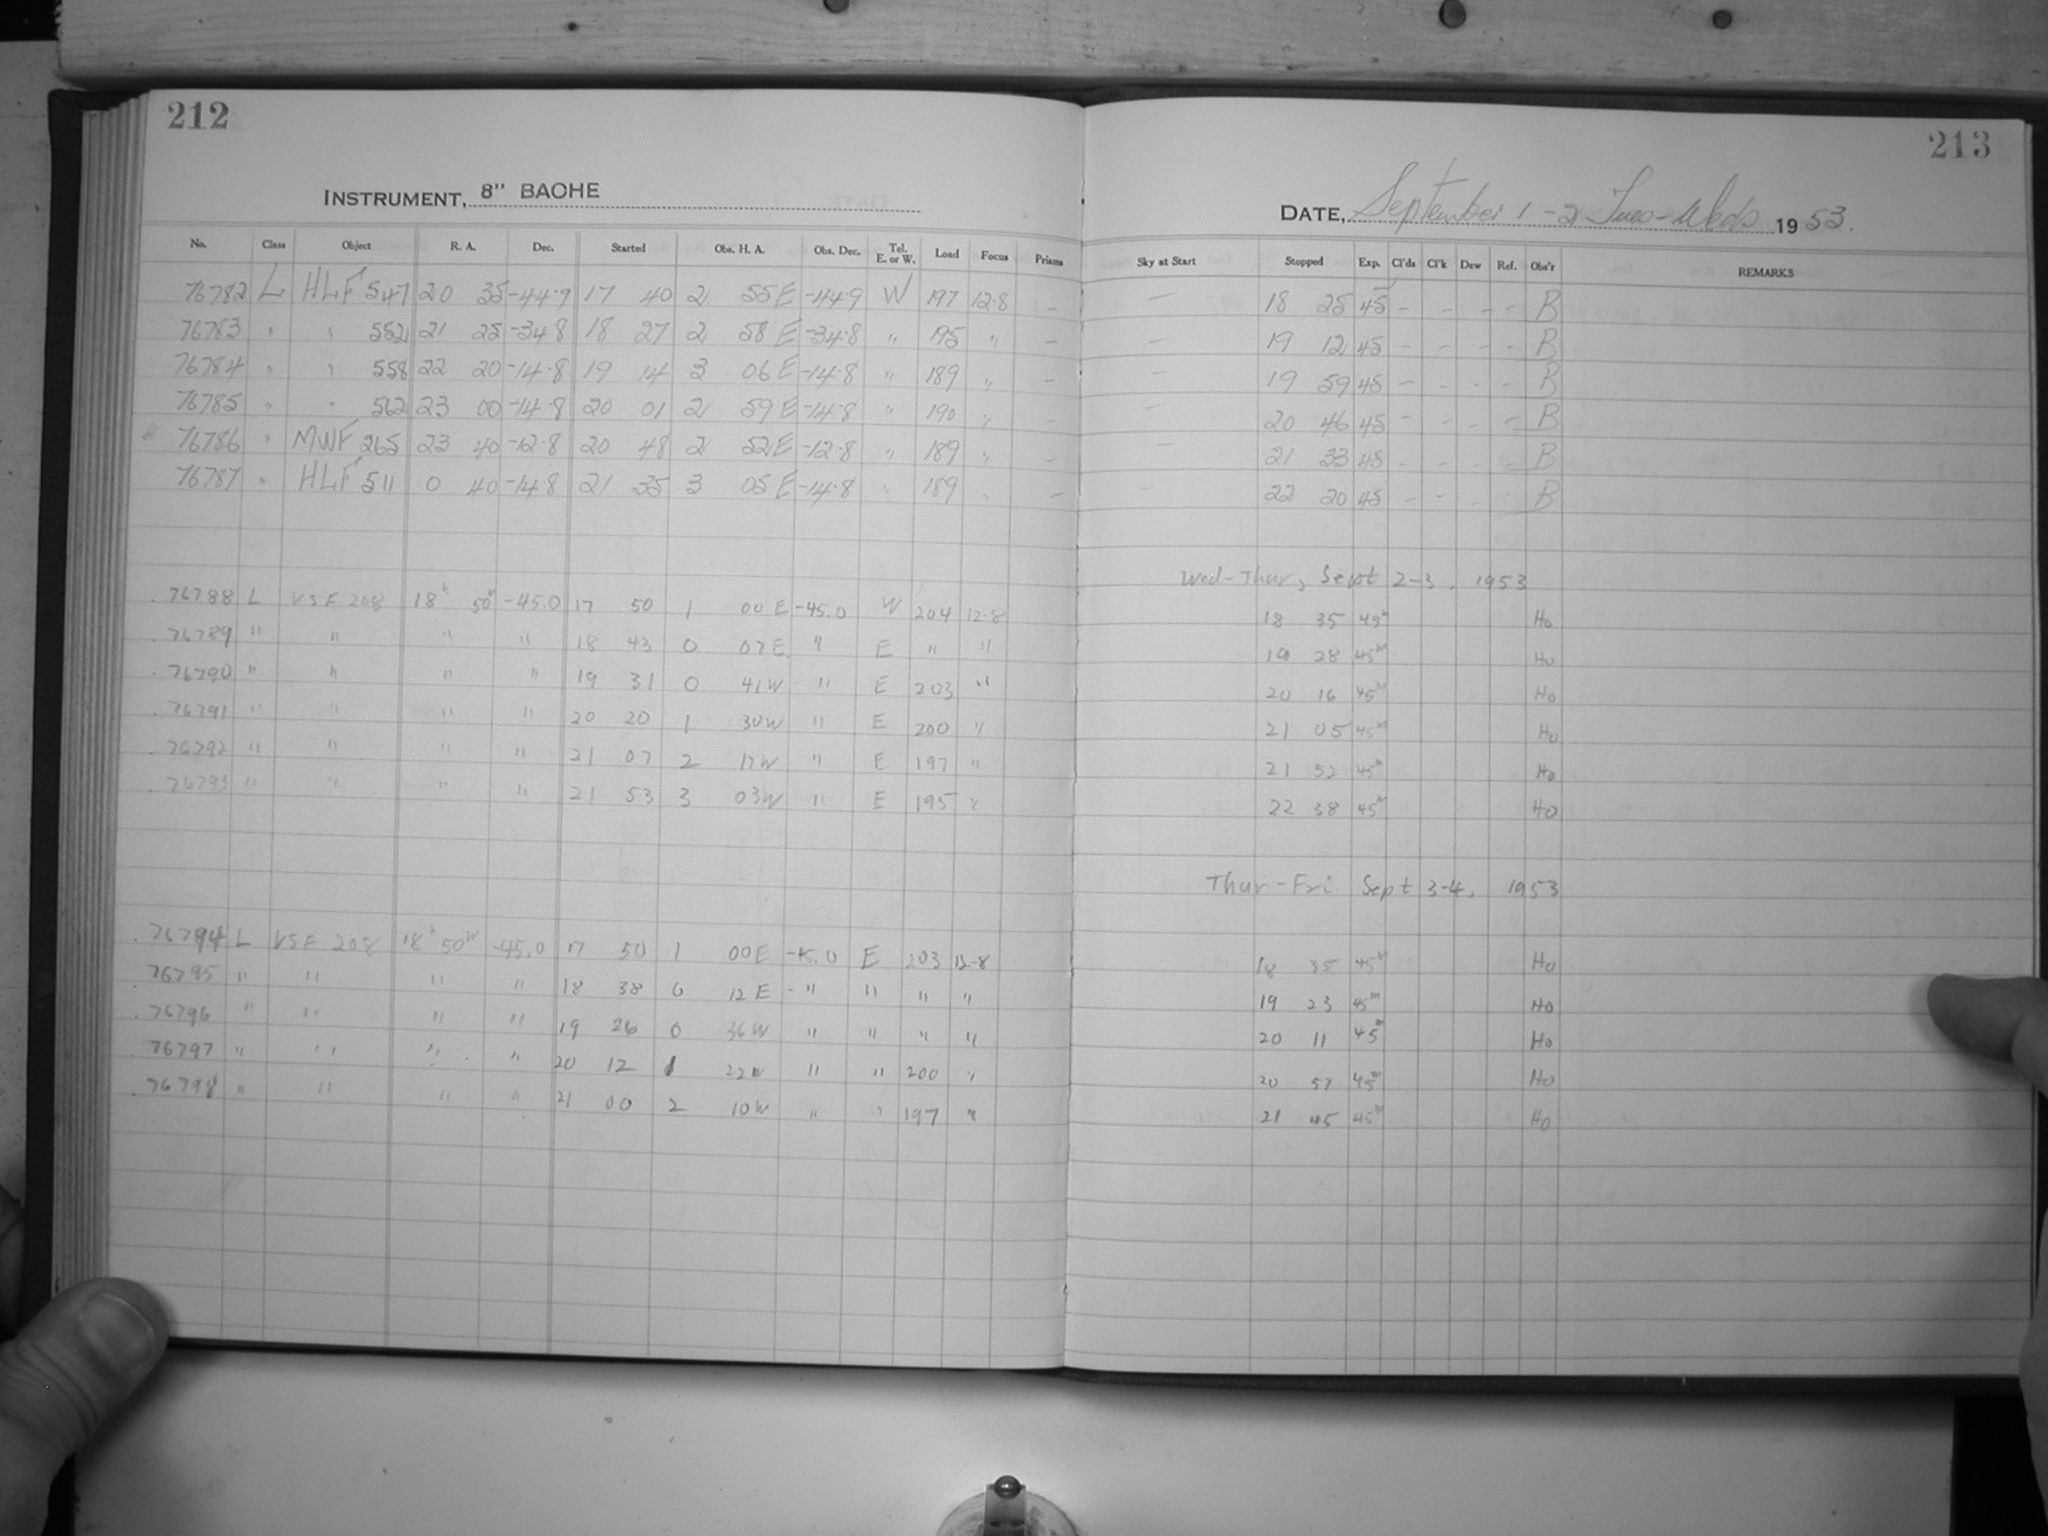 212
213
INSTRUMENT, 8" BACHE
DATE, September 1-2 Tues-Weds 1953.
No. Class Object R. A. Dec. Started Obs. H. A. Obs. Dec. Tel. E. or W. Load Focus Prisms Sky at Start Stopped Exp. Cl'ds Cl'k Dew Ref. Obs'r REMARKS
76782 L HLF 547 20 35 -44.9 17 40 2 55 E -44.9 W 197 12.8 – – 18 25 45 – – – – B
76783 " " 552 21 25 -34.8 18 27 2 58 E -34.8 " 195 " – – 19 12 45 – – – – B
76784 " " 558 22 20 -14.8 19 14 3 06 E -14.8 " 189 " – – 19 59 45 – – – – B
76785 " " 562 23 00 -14.8 20 01 2 59 E -14.8 " 190 " – – 20 46 45 – – – – B
76786 " MWF 265 23 40 -12.8 20 48 2 52 E -12.8 " 189 " – – 21 33 45 – – – – B
76787 " HLF 511 0 40 -14.8 21 35 3 05 E -14.8 " 189 " – – 22 20 45 – – – – B
Wed-Thur, Sept 2-3, 1953
76788 L VSF 208 18h 50m -45.0 17 50 1 00 E -45.0 W 204 12.8 18 35 45m Ho
76789 " " " " 18 43 0 07 E " E " " 19 28 45m Ho
76790 " " " " 19 31 0 41 W " E 203 " 20 16 45m Ho
76791 " " " " 20 20 1 30 W " E 200 " 21 05 45m Ho
76792 " " " " 21 07 2 17 W " E 197 " 21 52 45m Ho
76793 " " " " 21 53 3 03 W " E 195 " 22 38 45m Ho
Thur-Fri Sept 3-4, 1953
76794 L VSF 208 18h 50m -45.0 17 50 1 00 E -45.0 E 203 12.8 18 35 45m Ho
76795 " " " " 18 38 0 12 E -" " " " 19 23 45m Ho
76796 " " " " 19 26 0 36 W " " " " 20 11 45m Ho
76797 " " " " 20 12 1 22 W " " 200 " 20 57 45m Ho
76798 " " " " 21 00 2 10 W " " 197 " 21 45 45m Ho